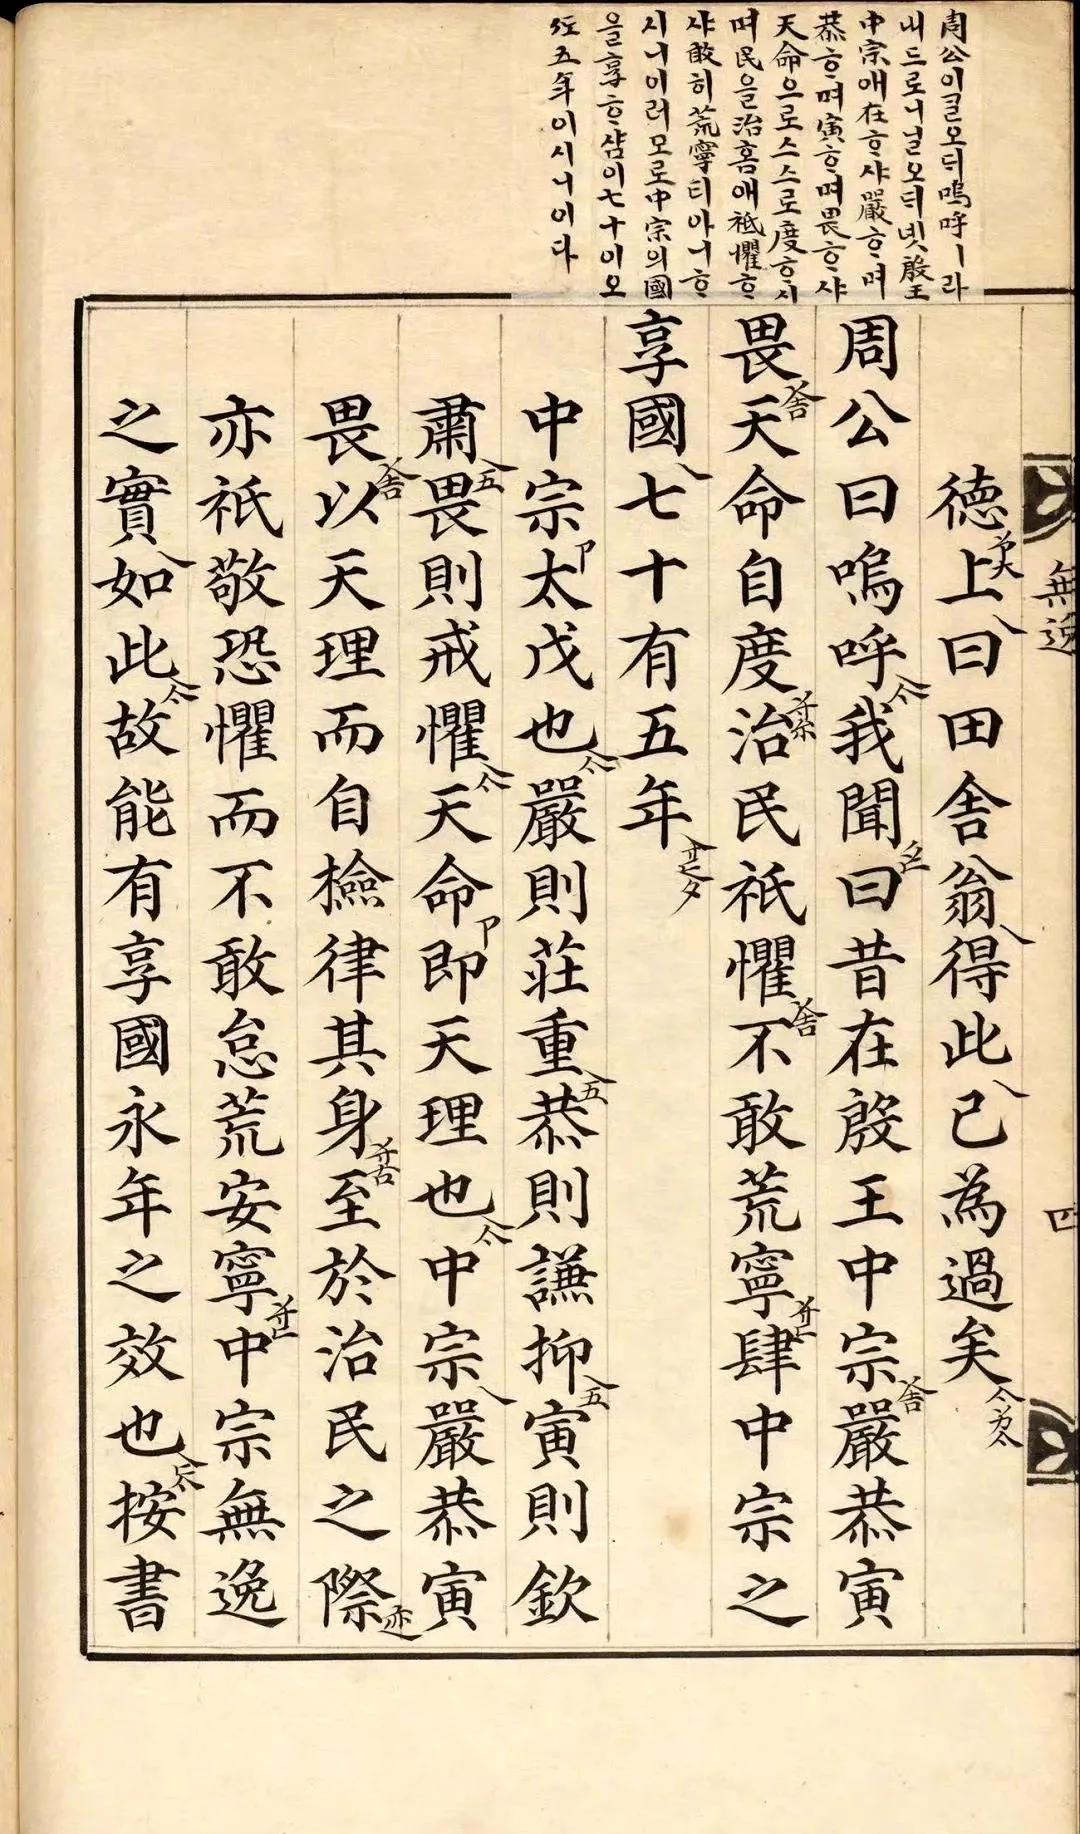 周公이ᄀᆞᆯ오ᄃᆡ嗚呼ㅣ라
내드로니ᄀᆞᆯ오ᄃᆡ녯殷王
中宗애在ᄒᆞ샤嚴ᄒᆞ며
恭ᄒᆞ며寅ᄒᆞ며畏ᄒᆞ샤
天命으로스스로度ᄒᆞ시
며民을治홈애祗懼ᄒᆞ
샤敢히荒寧티아니ᄒᆞ
시니이러모로中宗의國
을享ᄒᆞ샴이七十이오
五年이시니이다
無逸
四
德上曰田舍翁得此已為過矣
周公曰嗚呼我聞曰昔在殷王中宗嚴恭寅
畏天命自度治民祗懼不敢荒寧肆中宗之
享國七十有五年
中宗太戊也嚴則莊重恭則謙抑寅則欽
肅畏則戒懼天命即天理也中宗嚴恭寅
畏以天理而自檢律其身至於治民之際
亦祗敬恐懼而不敢怠荒安寧中宗無逸
之實如此故能有享國永年之效也按書